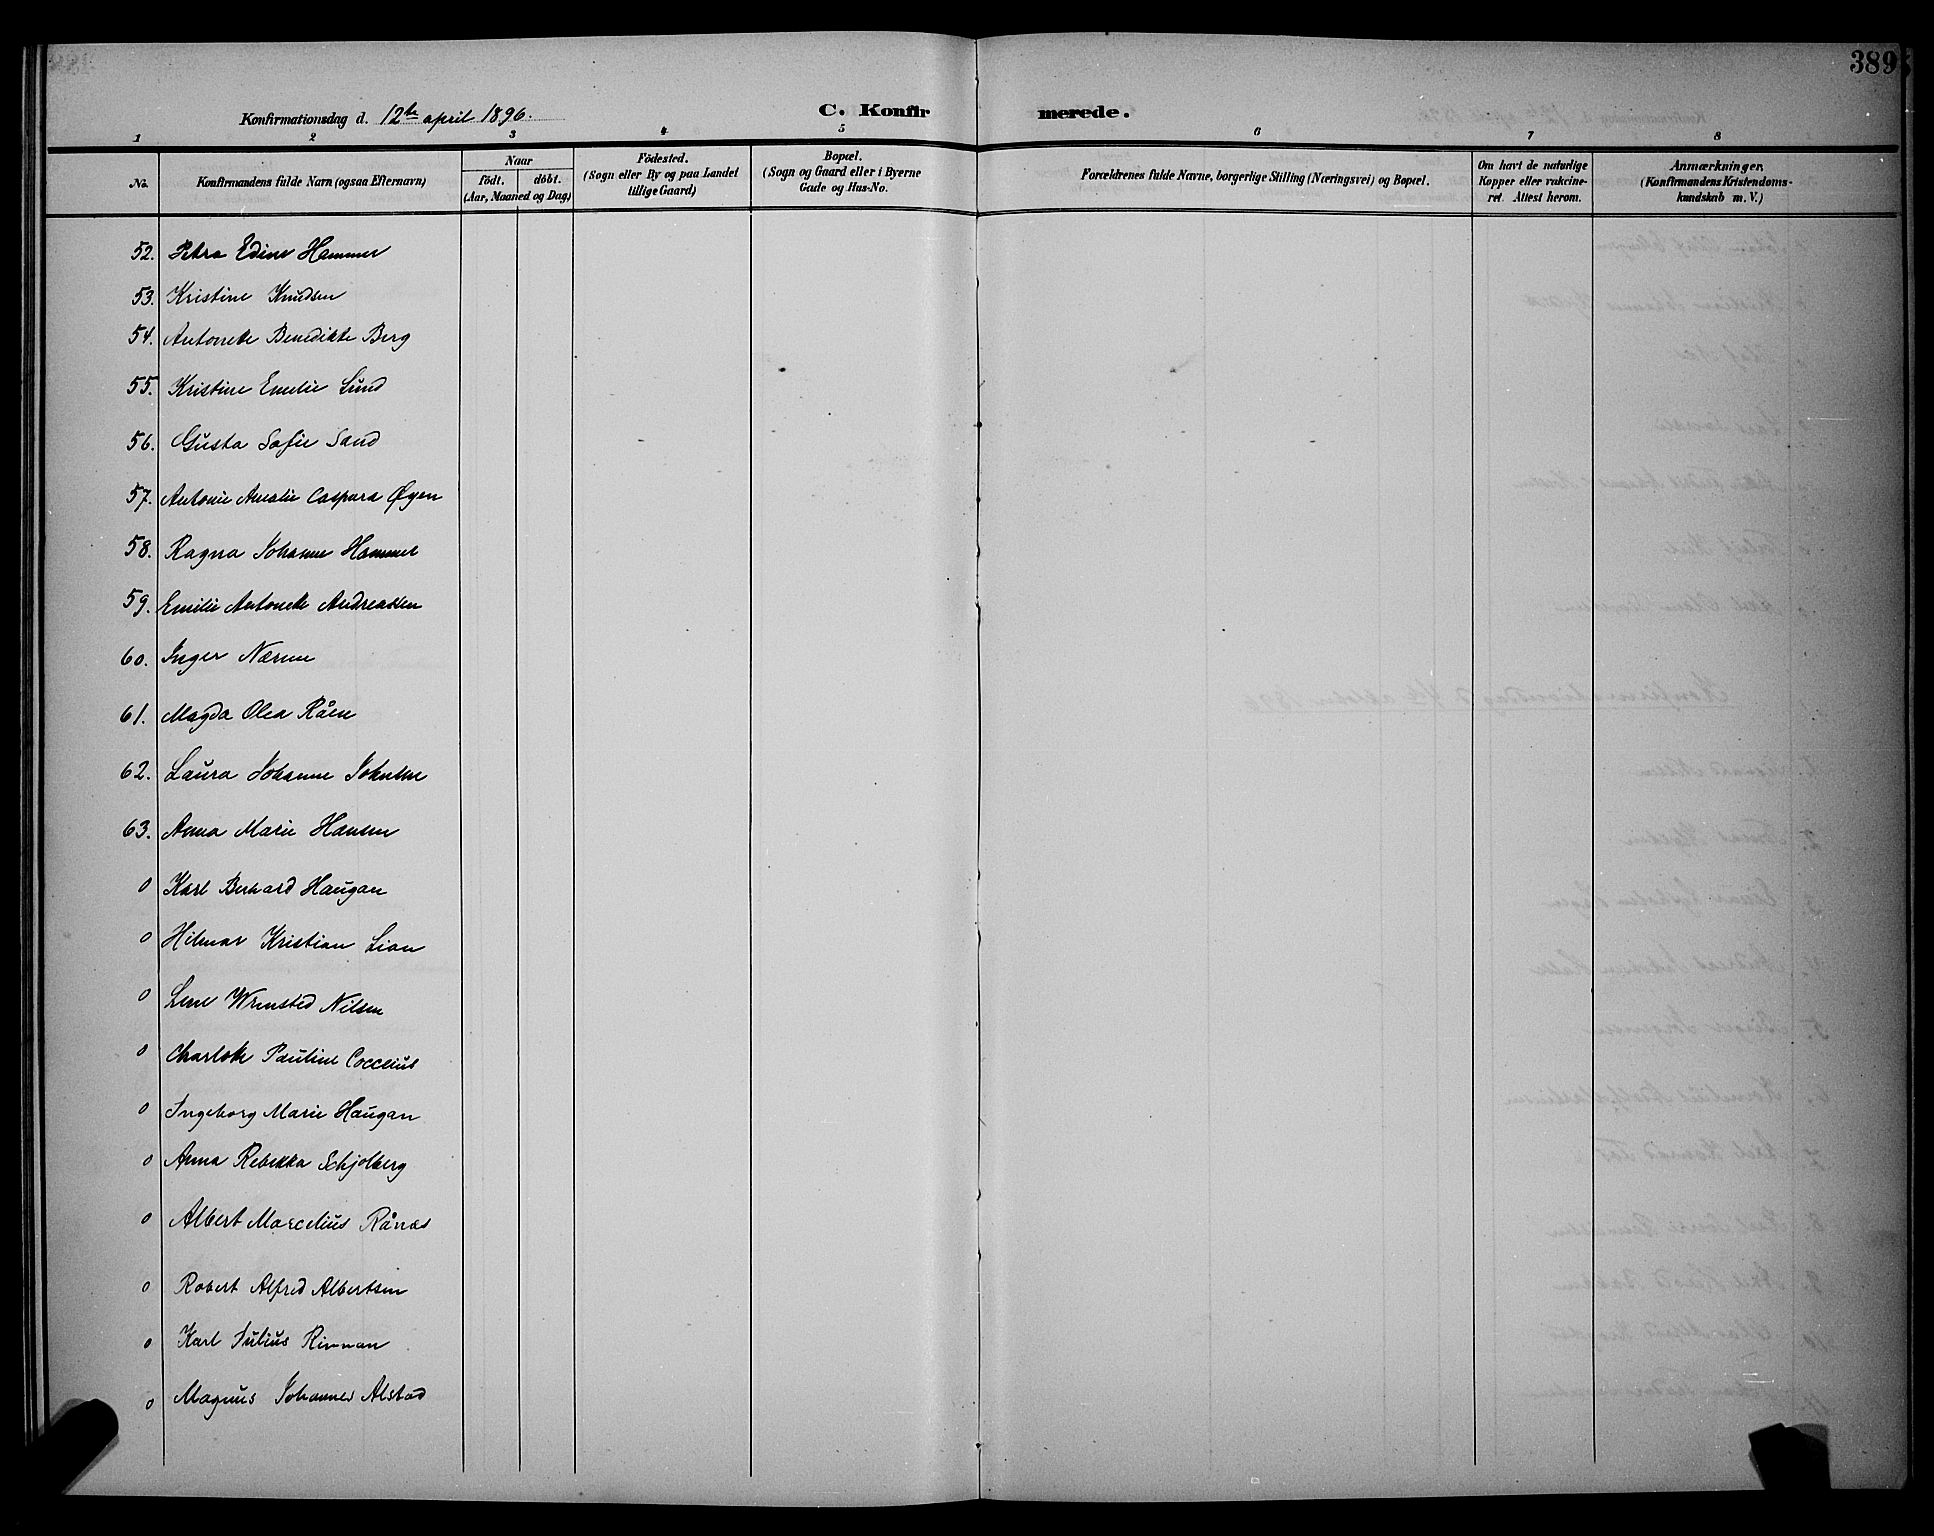 389
Konfirmationsdag d. 12te april 1896.
C. Konfirmerede.
1 2 3 4 5 6 7 8
No.
Konfirmandens fulde Navn (ogsaa Efternavn)
Naar
födt. döbt.
(Aar, Maaned og Dag)
Födested.
(Sogn eller By og paa Landet
tillige Gaard)
Bopæl.
(Sogn og Gaard eller i Byerne
Gade og Hus-No.
Forældrenes fulde Navne, borgerlige Stilling (Næringsvei) og Bopæl.
Om havt de naturlige
Kopper eller vakcine-
ret. Attest herom.
Anmærkninger.
(Konfirmandens Kristendoms-
kundskab m. V.)
52. Petra Edine Hammer
53. Kristine Knudsen
54. Antonette Benedikte Berg
55. Kristine Emelie Lund
56. Gusta Sofie Sand
57. Antonie Amalie Caspara Øyen
58. Ragna Johanne Hammer
59. Emilie Antonette Andreassen
60. Inger Nærum
61. Magda Olea Råen
62. Laura Johanne Johnsen
63. Anna Marie Hansen
0 Karl Berhard Haugan
0 Hilmar Kristian Lian
0 Lene Wrensted Nilsen
0 Charlotte Pauline Coccelius
0 Ingeborg Marie Haugan
0 Anna Rebekka Schjolberg
0 Albert Marcelius Rånes
0 Robert Alfred Albertsen
0 Karl Julius Rinnan
0 Magnus Johannes Alstad